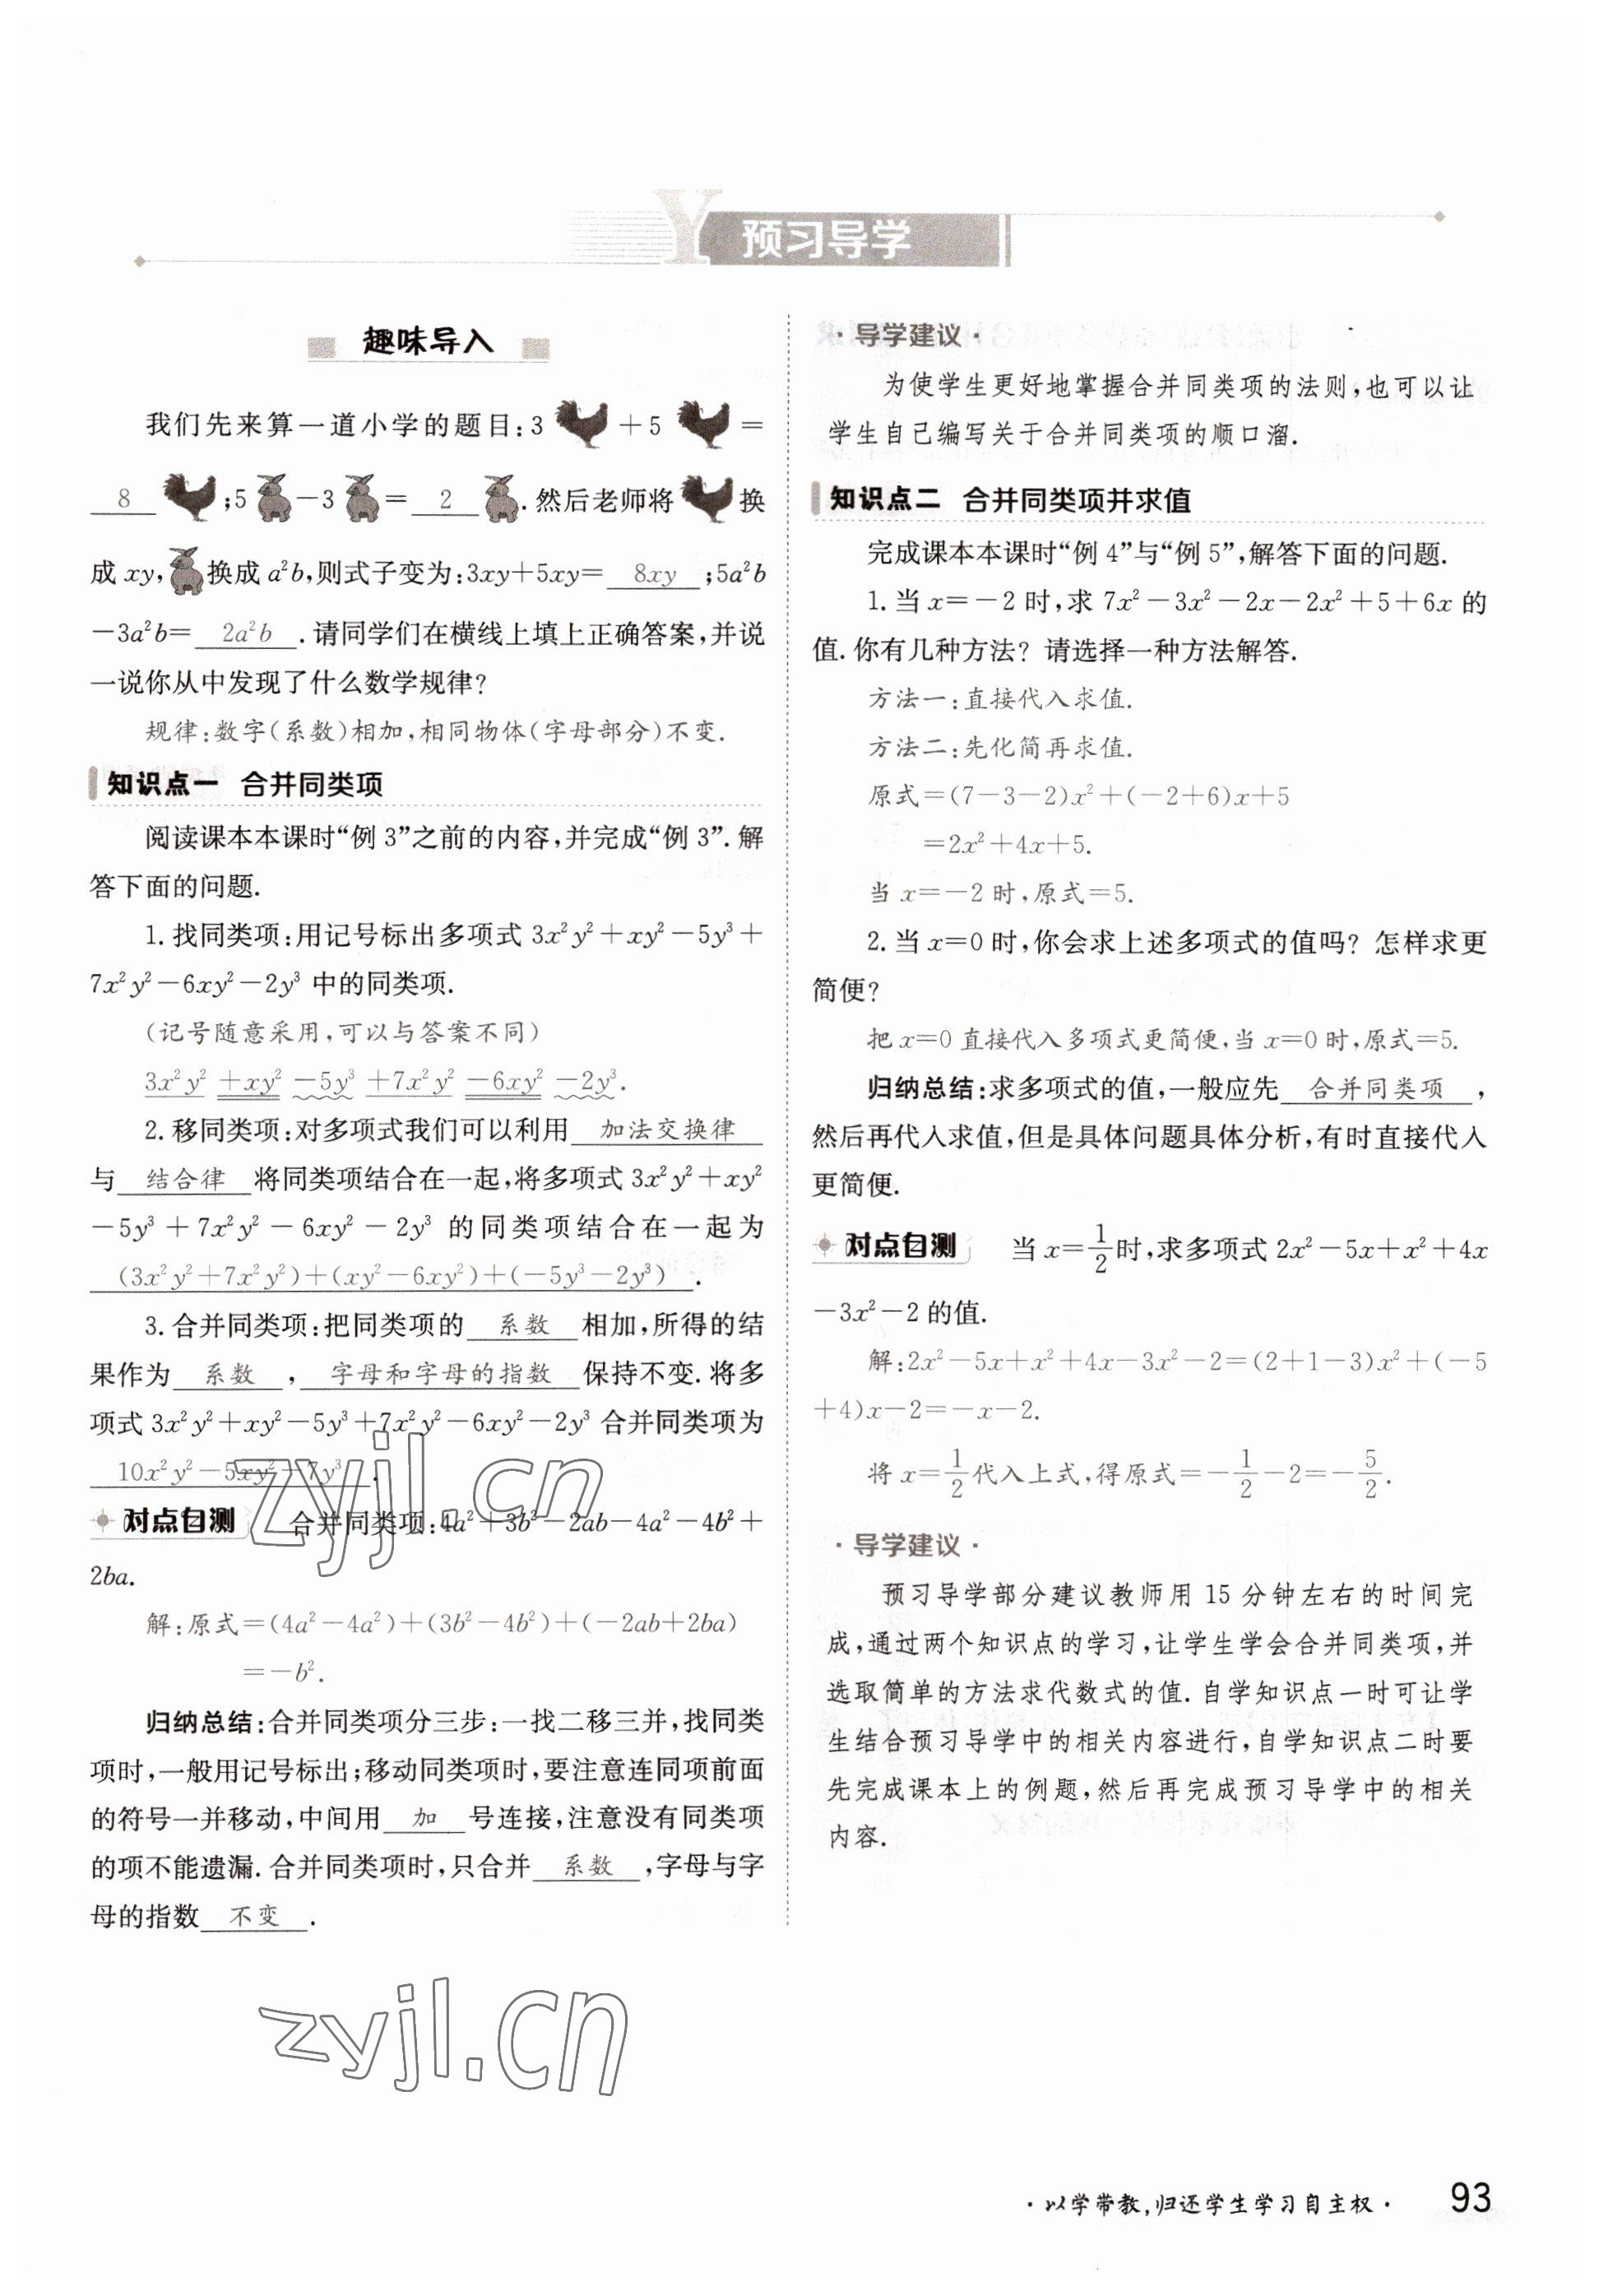 预习导学
趣味导入
我们先来算一道小学的题目:3 +5 =
8 ;5 -3 = 2 .然后老师将 换
成 xy, 换成 a²b,则式子变为:3xy+5xy= 8xy ;5a²b
-3a²b= 2a²b .请同学们在横线上填上正确答案,并说
一说你从中发现了什么数学规律?
规律:数字(系数)相加,相同物体(字母部分)不变.
知识点一 合并同类项
阅读课本本课时“例 3”之前的内容,并完成“例 3”.解
答下面的问题.
1. 找同类项:用记号标出多项式 3x²y²+xy²-5y³+
7x²y²-6xy²-2y³ 中的同类项.
(记号随意采用,可以与答案不同)
3x²y² +xy² -5y³ +7x²y² -6xy² -2y³.
2. 移同类项:对多项式我们可以利用 加法交换律
与 结合律 将同类项结合在一起,将多项式 3x²y²+xy²
-5y³+7x²y²-6xy²-2y³ 的同类项结合在一起为
(3x²y²+7x²y²)+(xy²-6xy²)+(-5y³-2y³) .
3. 合并同类项:把同类项的 系数 相加,所得的结
果作为 系数 , 字母和字母的指数 保持不变.将多
项式 3x²y²+xy²-5y³+7x²y²-6xy²-2y³ 合并同类项为
10x²y²-5xy²-7y³ .
对点自测 合并同类项:4a²+3b²-2ab-4a²-4b²+
2ba.
解:原式=(4a²-4a²)+(3b²-4b²)+(-2ab+2ba)
=-b².
归纳总结:合并同类项分三步:一找二移三并,找同类
项时,一般用记号标出;移动同类项时,要注意连同项前面
的符号一并移动,中间用 加 号连接,注意没有同类项
的项不能遗漏.合并同类项时,只合并 系数 ,字母与字
母的指数 不变 .
·导学建议·
为使学生更好地掌握合并同类项的法则,也可以让
学生自己编写关于合并同类项的顺口溜.
知识点二 合并同类项并求值
完成课本本课时“例 4”与“例 5”,解答下面的问题.
1. 当 x=-2 时,求 7x²-3x²-2x-2x²+5+6x 的
值.你有几种方法? 请选择一种方法解答.
方法一:直接代入求值.
方法二:先化简再求值.
原式=(7-3-2)x²+(-2+6)x+5
=2x²+4x+5.
当 x=-2 时,原式=5.
2. 当 x=0 时,你会求上述多项式的值吗? 怎样求更
简便?
把 x=0 直接代入多项式更简便,当 x=0 时,原式=5.
归纳总结:求多项式的值,一般应先 合并同类项 ,
然后再代入求值,但是具体问题具体分析,有时直接代入
更简便.
对点自测 当 x=1/2时,求多项式 2x²-5x+x²+4x
-3x²-2 的值.
解:2x²-5x+x²+4x-3x²-2=(2+1-3)x²+(-5
+4)x-2=-x-2.
将 x=1/2代入上式,得原式=-1/2-2=-5/2.
·导学建议·
预习导学部分建议教师用 15 分钟左右的时间完
成,通过两个知识点的学习,让学生学会合并同类项,并
选取简单的方法求代数式的值.自学知识点一时可让学
生结合预习导学中的相关内容进行,自学知识点二时要
先完成课本上的例题,然后再完成预习导学中的相关
内容.
zyjl.cn
zyjl.cn
·以学带教,归还学生学习自主权· 93